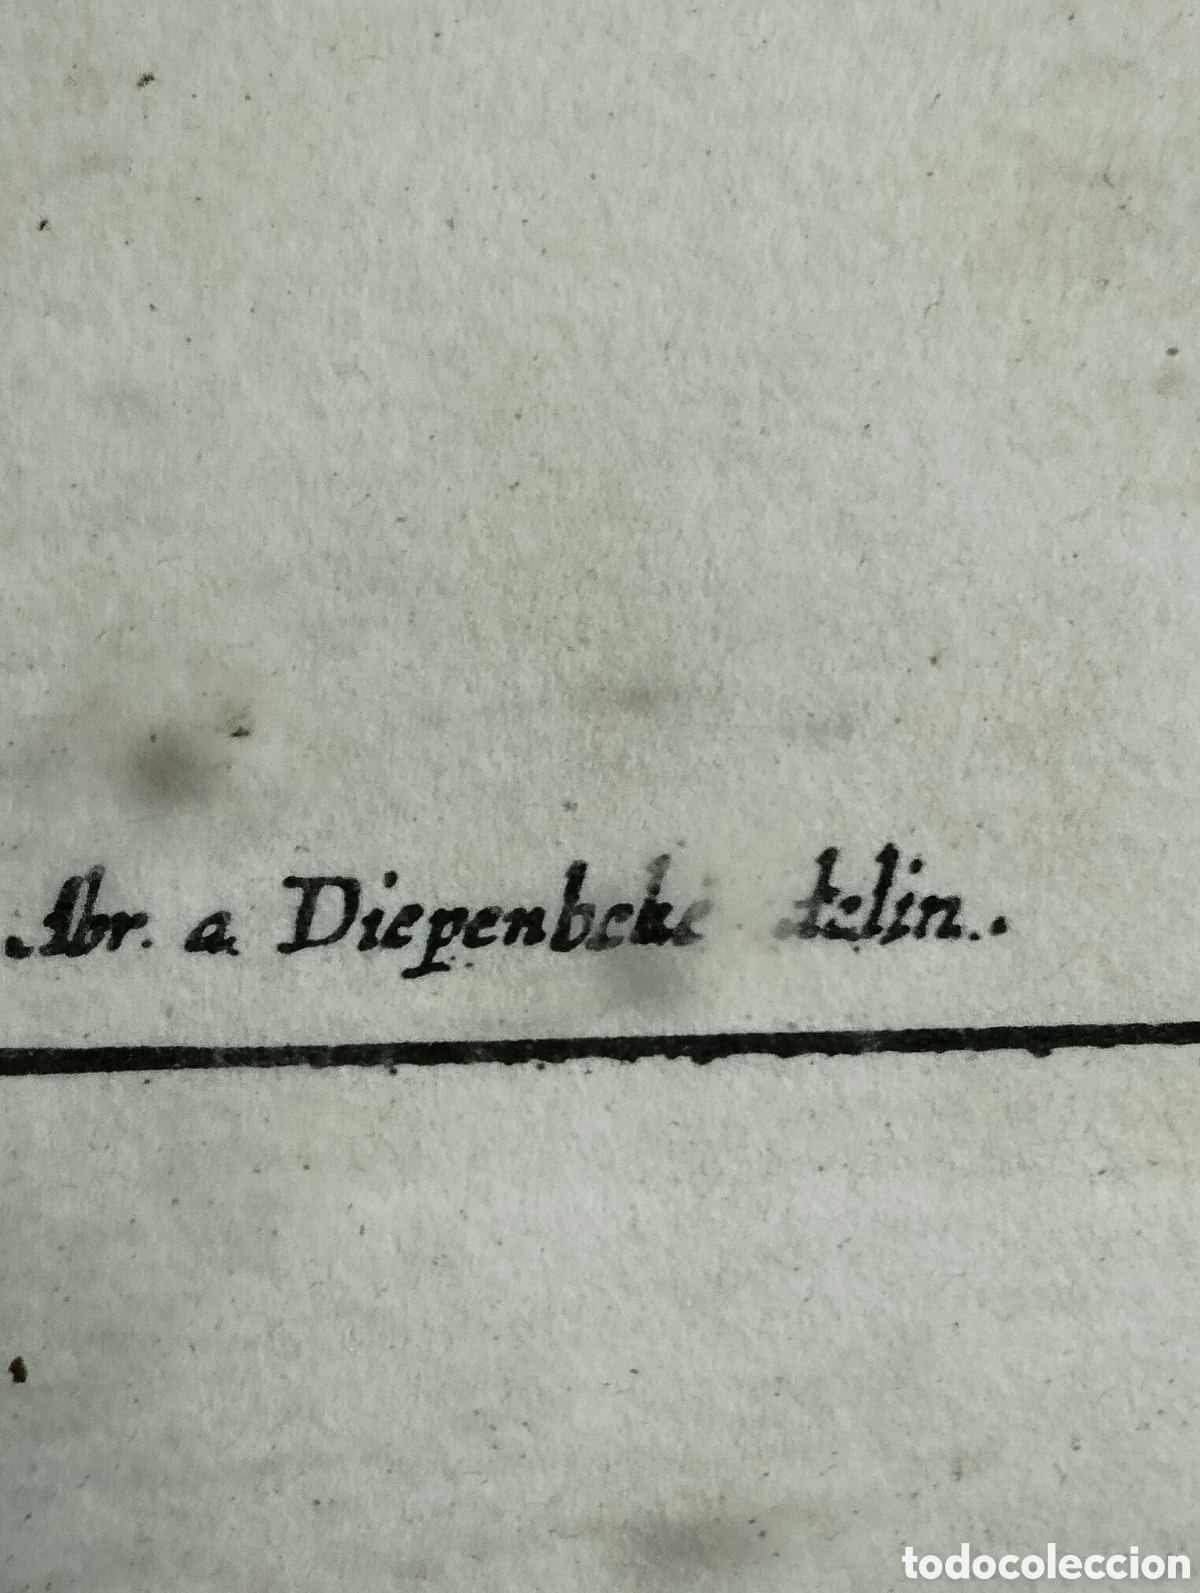 Abr. a Diepenbeke delin.
todocoleccion